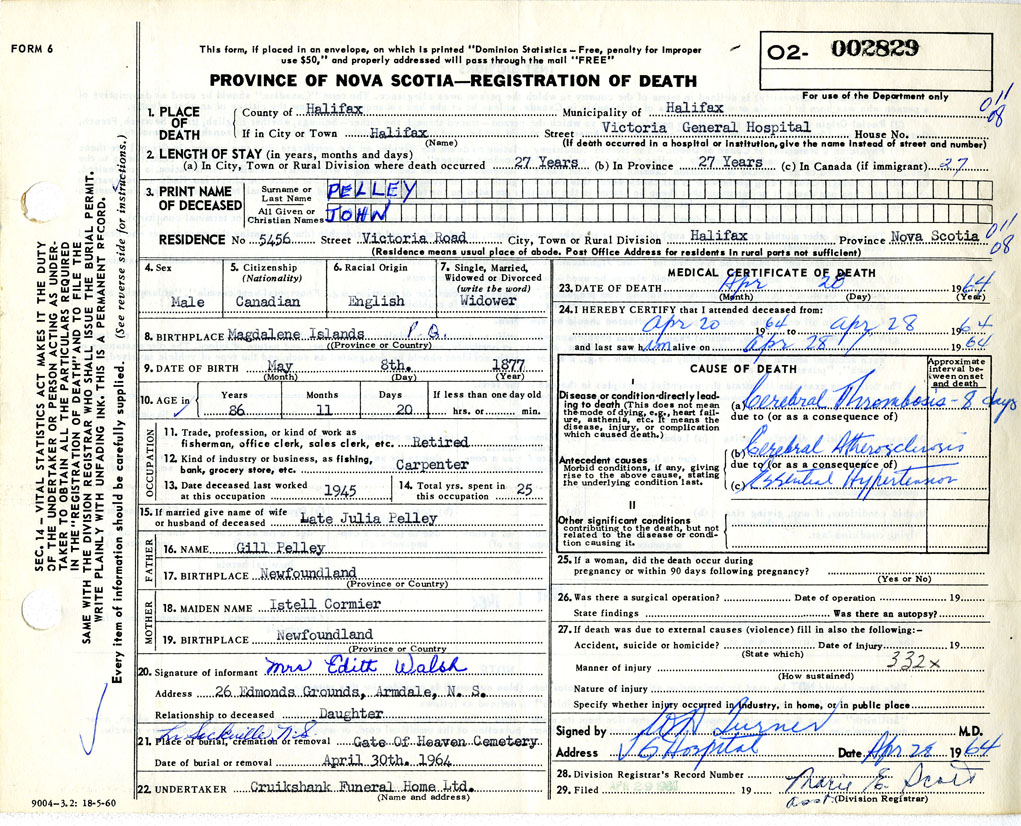 FORM 6
This form, if placed in an envelope, on which is printed "Dominion Statistics – Free, penalty for improper
use $50," and properly addressed will pass through the mail "FREE"
PROVINCE OF NOVA SCOTIA—REGISTRATION OF DEATH
O2- 002829
For use of the Department only
011
08
SEC. 14 – VITAL STATISTICS ACT MAKES IT THE DUTY
OF THE UNDERTAKER OR PERSON ACTING AS UNDER-
TAKER TO OBTAIN ALL THE PARTICULARS REQUIRED
IN THE "REGISTRATION OF DEATH" AND TO FILE THE
SAME WITH THE DIVISION REGISTRAR WHO SHALL ISSUE THE BURIAL PERMIT.
WRITE PLAINLY WITH UNFADING INK. THIS IS A PERMANENT RECORD.
Every item of information should be carefully supplied. (See reverse side for instructions.)
1. PLACE OF DEATH
County of Halifax Municipality of Halifax
If in City or Town Halifax Street Victoria General Hospital House No.
(Name) (If death occurred in a hospital or institution, give the name instead of street and number)
2. LENGTH OF STAY (in years, months and days)
(a) In City, Town or Rural Division where death occurred 27 Years (b) In Province 27 Years (c) In Canada (if immigrant) 27
3. PRINT NAME OF DECEASED
Surname or Last Name PELLEY
All Given or Christian Names JOHN
RESIDENCE No 5456 Street Victoria Road City, Town or Rural Division Halifax Province Nova Scotia
011
08
(Residence means usual place of abode. Post Office Address for residents in rural parts not sufficient)
4. Sex
Male
5. Citizenship
(Nationality)
Canadian
6. Racial Origin
English
7. Single, Married,
Widowed or Divorced
(write the word)
Widower
8. BIRTHPLACE Magdalene Islands P.Q.
(Province or Country)
9. DATE OF BIRTH May 8th. 1877
(Month) (Day) (Year)
10. AGE in
Years Months Days If less than one day old
86 11 20 hrs. or min.
OCCUPATION
11. Trade, profession, or kind of work as
fisherman, office clerk, sales clerk, etc. Retired
12. Kind of industry or business, as fishing,
bank, grocery store, etc. Carpenter
13. Date deceased last worked
at this occupation 1945
14. Total yrs. spent in
this occupation 25
15. If married give name of wife
or husband of deceased Late Julia Pelley
FATHER
16. NAME Gill Pelley
17. BIRTHPLACE Newfoundland
(Province or Country)
MOTHER
18. MAIDEN NAME Istell Cormier
19. BIRTHPLACE Newfoundland
(Province or Country)
20. Signature of informant Mrs Edith Walsh
Address 26 Edmonds Grounds, Armdale, N. S.
Relationship to deceased Daughter
Lr Sackville N.S.
21. Place of burial, cremation or removal Gate Of Heaven Cemetery
Date of burial or removal April 30th. 1964
22. UNDERTAKER Cruikshank Funeral Home Ltd.
(Name and address)
9004–3.2: 18-5-60
MEDICAL CERTIFICATE OF DEATH
23. DATE OF DEATH Apr 28 1964
(Month) (Day) (Year)
24. I HEREBY CERTIFY that I attended deceased from:
Apr 20 1964 to Apr 28 1964
and last saw him alive on Apr 28 1964
CAUSE OF DEATH
Approximate
interval be-
tween onset
and death
I
Disease or condition directly lead-
ing to death (This does not mean
the mode of dying, e.g., heart fail-
ure, asthenia, etc. It means the
disease, injury, or complication
which caused death.)
(a) Cerebral Thrombosis - 8 days
due to (or as a consequence of)
Antecedent causes
Morbid conditions, if any, giving
rise to the above cause, stating
the underlying condition last.
(b) Cerebral Atherosclerosis
due to (or as a consequence of)
(c) Essential Hypertension
II
Other significant conditions
contributing to the death, but not
related to the disease or condi-
tion causing it.
25. If a woman, did the death occur during
pregnancy or within 90 days following pregnancy?
(Yes or No)
26. Was there a surgical operation? Date of operation 19
State findings Was there an autopsy?
27. If death was due to external causes (violence) fill in also the following:–
Accident, suicide or homicide? Date of injury 19
(State which)
332x
Manner of injury
(How sustained)
Nature of injury
Specify whether injury occurred in industry, in home, or in public place
Signed by W A Turner M.D.
Address V G Hospital Date Apr 28 1964
28. Division Registrar's Record Number
29. Filed 19 Marie E. Scott
asst. (Division Registrar)